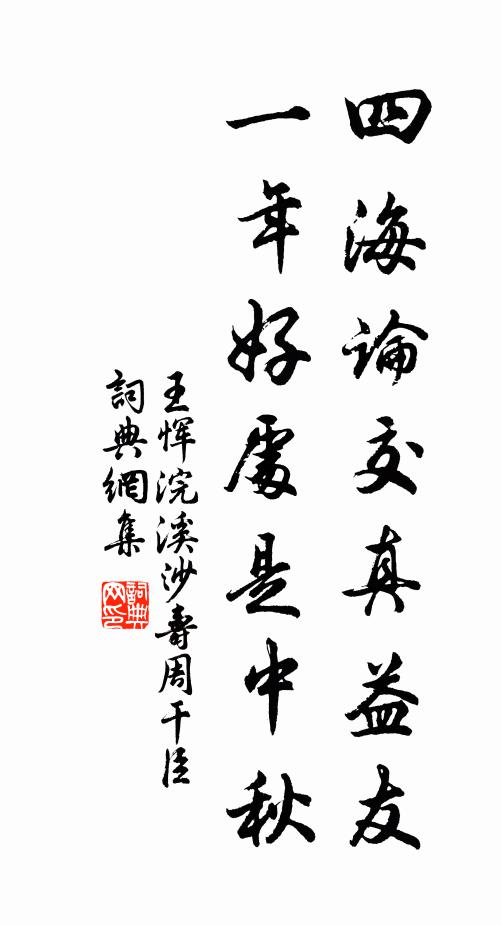 四海論交真益友
一年好處是中秋
王惲浣溪沙壽周干臣
詞典網集
詞典網印